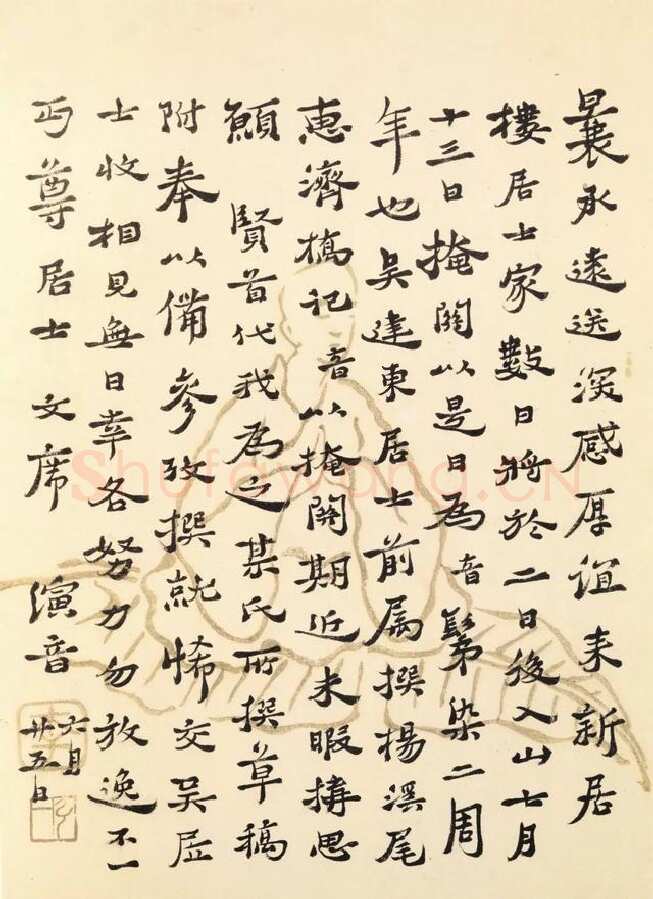 曩承遠送深感厚誼来新居
樓居士家數日將於二日後入山七月
十三日掩關以是日為音鬀染二周
年也吳建東居士前属撰揚溪尾
惠濟橋記音以掩關期近未暇搆思
願賢首代我為之某氏所撰草稿
附奉以備參攷撰就希交吳居
士收相見無日幸各努力勿放逸不一
丏尊居士文席演音
六月
廿五日
Shufawong.CN